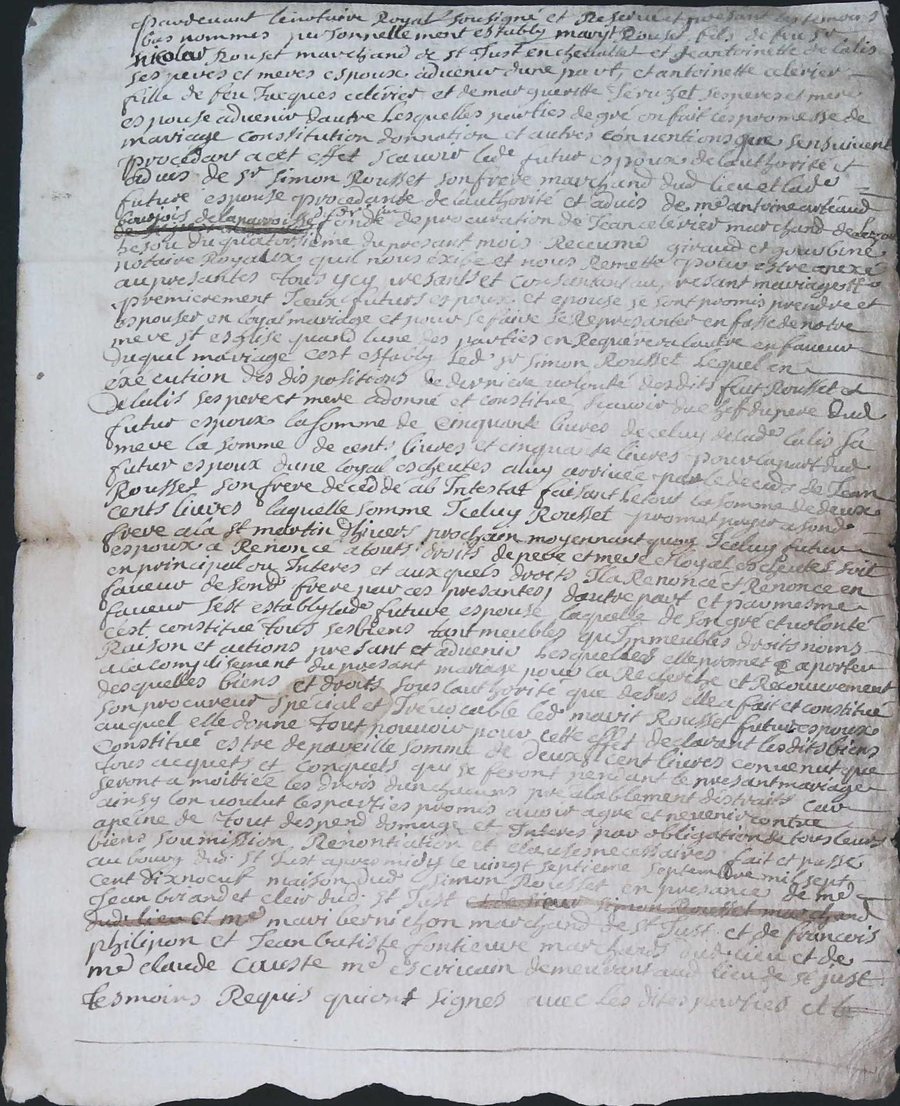 pardevant le notaire Royal sousigné et Reservé et presant les temoins
bas nommes personnellement estably marit Rouset fils de feu Sr
nicolas Rouset marchand de St Just en chevallet et Jeantoinette de lalis
ses peres et meres espoux advenir dune part, et antoinette celerier
fille de feu Jacques celerier et de margueritte ses pere et mere
espouse advenir dautre lesquelles parties de gré on fait les promesse de
mariage constitution donnation et autres conventions que sensuivent
procedant a cet effet scavoir led futur espoux de lauthorité et
advis de Sr Simon Rousset son frere marchand dud lieu et lade
future espouse procedante de lauthorité et advis de me antoine arteaud
bourjois de la parroisse fondé de procuration de Jean celerier marchand de
du quatorsieme du presant mois Receu me giraud et
notaire Royaux quil nous exibe et nous Remette pour estre anexé
au presantes tous ycy presants et consentans au presant mariage
premierement Iceux futurs espoux et epouse se sont promis prendre et
espouser en loyal mariage et pour se faire se Representer en fasse de notre
mere st esglise quand lune des parties en Requerera lautre en faveur
duquel mariage cest estably led Sr Simon Rousset lequel en
execution des dispositions de derniere volonté desdits feu Rousset et
delalis ses pere et mere a donné et constitué scavoir du chef du pere dud
futur espoux la somme de cinquante livres de celuy de lade lalis sa
mere la somme de cents livres et cinquante livres pour la part dud
futur espoux dune loyal escheutes a luy arrivée par le deceds de Jean
Rousset son frere decedé ab Intestat faisant le tout la somme de deux
cents livres laquelle somme Iceluy Rousset promet payer a sond
frere a la st martin dhivers prochain moyennant quoy Iceluy futur
espoux a Renoncé a touts droits de pere et mere et loyal escheutes soit
en principal ou Interes et aux quels droits Il a Renoncé et Renonce en
faveur de sond frere par ces presantes, dautre part et par mesme
faveur sest estably lade future espouse laquelle de son gré et volonté
cest constitué tous ses biens tant meubles qu Immeubles droits noms
Raison et actions presant et advenir lesquelles elle promet aporter
a la complisement du presant mariage pour la Recherche et Recouvrement
desquelles biens et droits sous lauthorité que desus elle a fait et constitué
son procureur special et Irevocable led marit Rousset futur espoux
auquel elle donne tout pouvoir pour cette effet declarant lesdits biens
constitué estre de pareille somme de deux cent livres convenut que
tous acquets et conquets qui se feront pendant le presant mariage
seront a moitiée les drois dun chacuns prealablement distraits car
ainsy lon voulut les parties promis avoir agré et ne venir contre
a peine de tout despend domage et Interes par obligation de tous leurs
biens soumission, Renontiation et clauses necessaires fait et passé
au bourg dud. St Just apres midy le vingt septieme septembre mil sept
cent dix neuf maison dud Simon Rousset en presance de me
Jean et clerc dud. St Just Simon Rousset marchand
dud lieu et me mari bernichon marchand de St Just et de francois
philipon et Jean batiste gontieuve marchands dud lieu et de
me claude couste me escrivain demeurant aud lieu de St Just
tesmoins Requis qui ont signes avec les dites parties et le